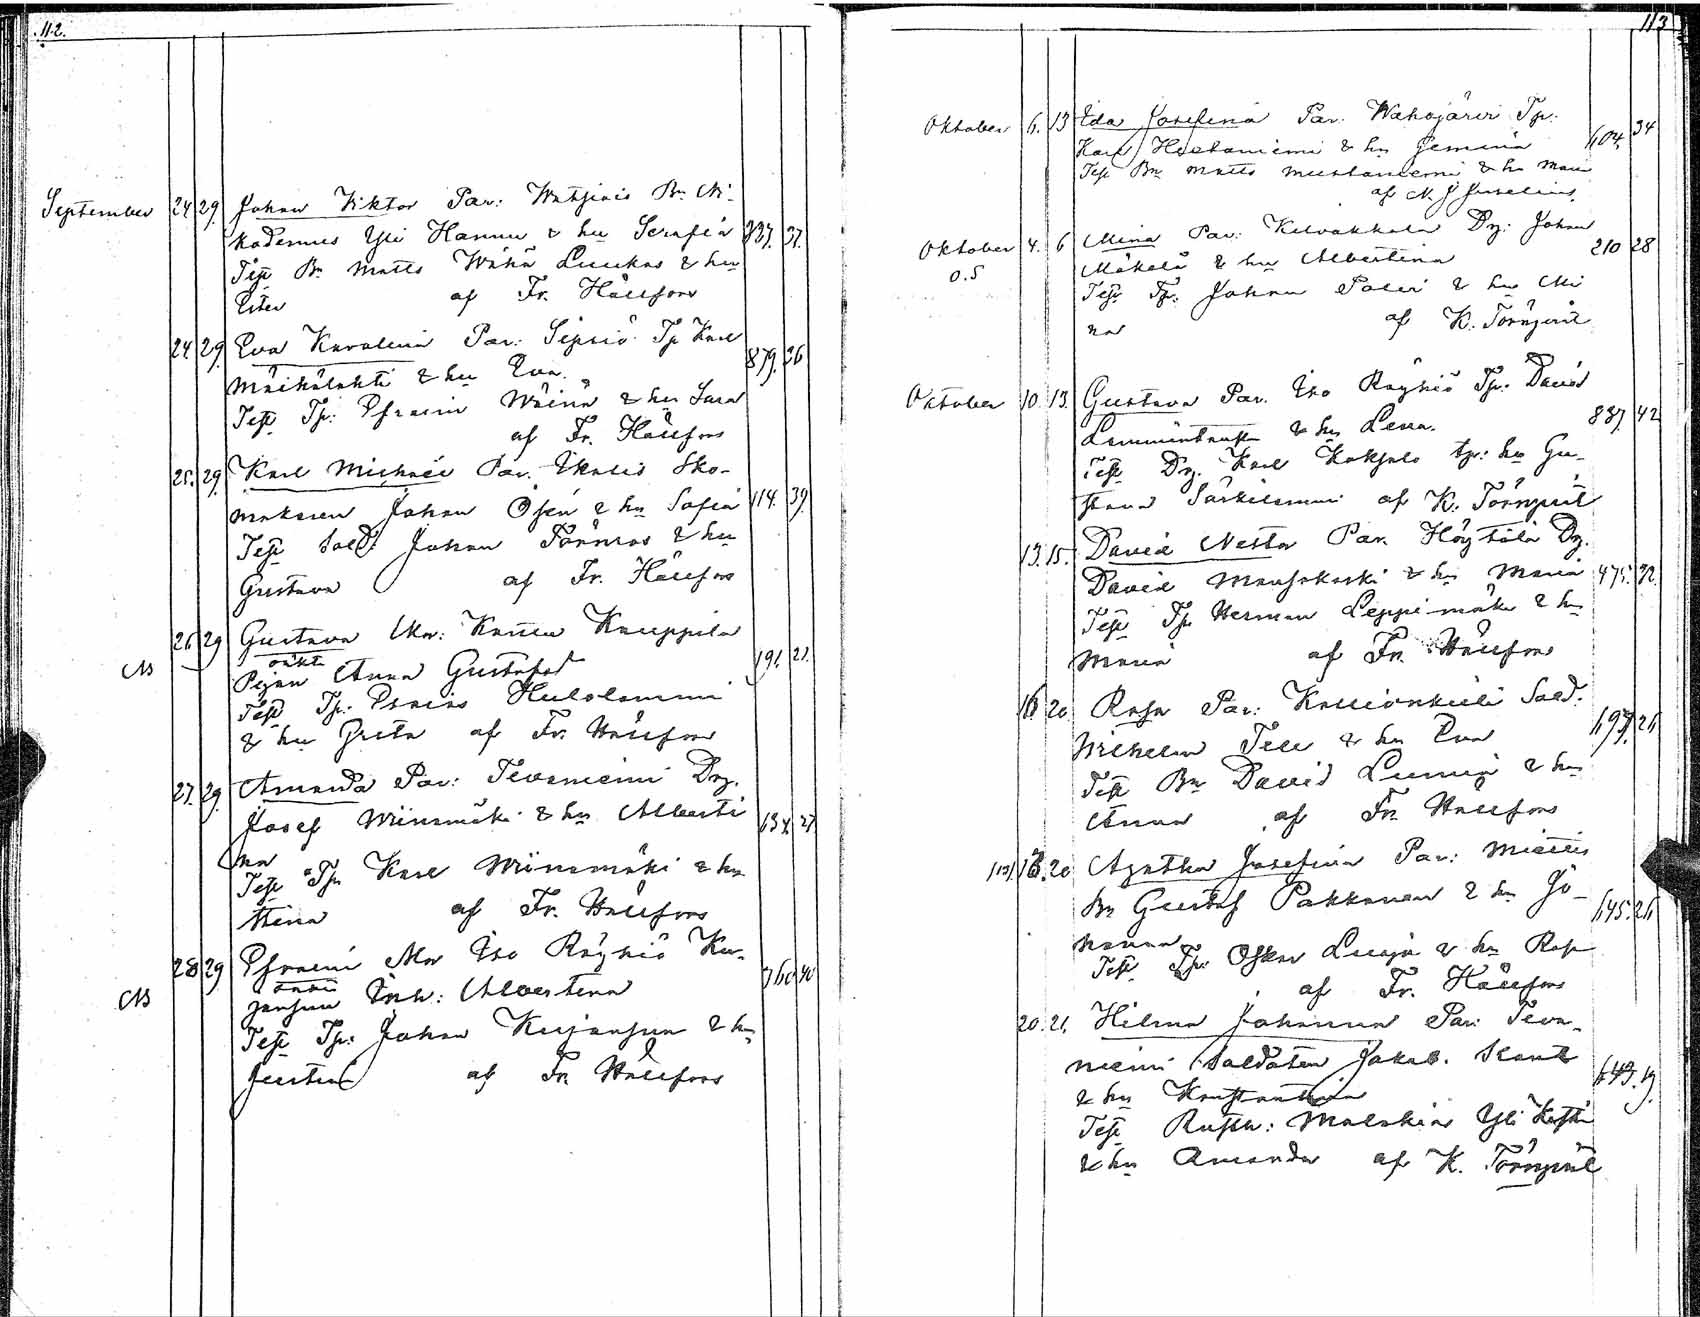 112.
September 24 29. Johan Viktor Par: Wuthsiois Bn Ni-
kodemus Yli Hannu & hu Serafia 337. 37.
Test Bn Matts Wähä Luukas & hu
Ester af Fr. Hällfors
24. 29. Eva Karolina Par: Seppiö Tp Karl
& hu Eva. 879. 36
Test Tp: Efraim Wäinä & hu Sara
af Fr. Hällfors
25. 29. Karl Michael Par. Ikalis Sko-
makaren Johan Ösen & hu Sofia 114. 39.
Test Sold: Johan Törnros & hu
Gustava af Fr. Hällfors
26 29 Gustava Mor: Kauppila
NB oäkta
Pigan Anna Gustafsd 191. 21.
Test Tp.
& hu Greta af Fr. Hällfors
27. 29. Amanda Par: Tevaniemi Drg.
Josef Wiinamäki & hu Alberti 634. 27
na
Test Tp. Karl Wiinamäki & hu
Stina af Fr. Hällfors
28 29 Efraim Mor Iso Röyhiö Ku-
NB oäkta
janpun Inh: Albertina 760 40
Test Tp: Johan Kujanpun & hu
Justina af Fr. Hällfors
113
Oktober 6. 13 Ida Josefina Par. Wahojärvi Tp:
Karl & hu Jemina 604. 34
Test Bn Matts Mustaniemi & hu Maria
af N. J. Juselius.
Oktober 4. 6 Mina Par: Kilvakkala Drg: Johan
o.S Mäkelä & hu Albertina 210 28
Test Tp: Johan & hu Mi
na af K. Törnqvist
Oktober 10. 13. Gustava Par. Iso Röyhiö Tp: David
& hu Lena. 837. 42
Test Drg. Karl tp: hu Gu-
stava af K. Törnqvist
13. 15. David Nestor Par. Höytölä Drg.
David Mansikoski & hu Maria 475. 32.
Test Tp Herman Leppimäki & hu
Maria af Fr. Hällfors
16 20 Rosa Par: Kallionkieli Sold.
Wilhelm Tell & hu Eva 26
Test Bn David Lumia & hu
Anna af Fr. Hällfors
20 Agatha Josefina Par: Miettis
Bn Gustaf Pakkanen & hu Jo- 645. 26
hanna
Test Tp: Oskar Luoja & hu Rosa
af Fr. Hällfors
20. 21. Hilma Johanna Par. Teva-
niemi Soldaten Jakob.
& hu Konstantina
Test Rusth: Malakias Yli
& hu Amanda af K. Törnqvist